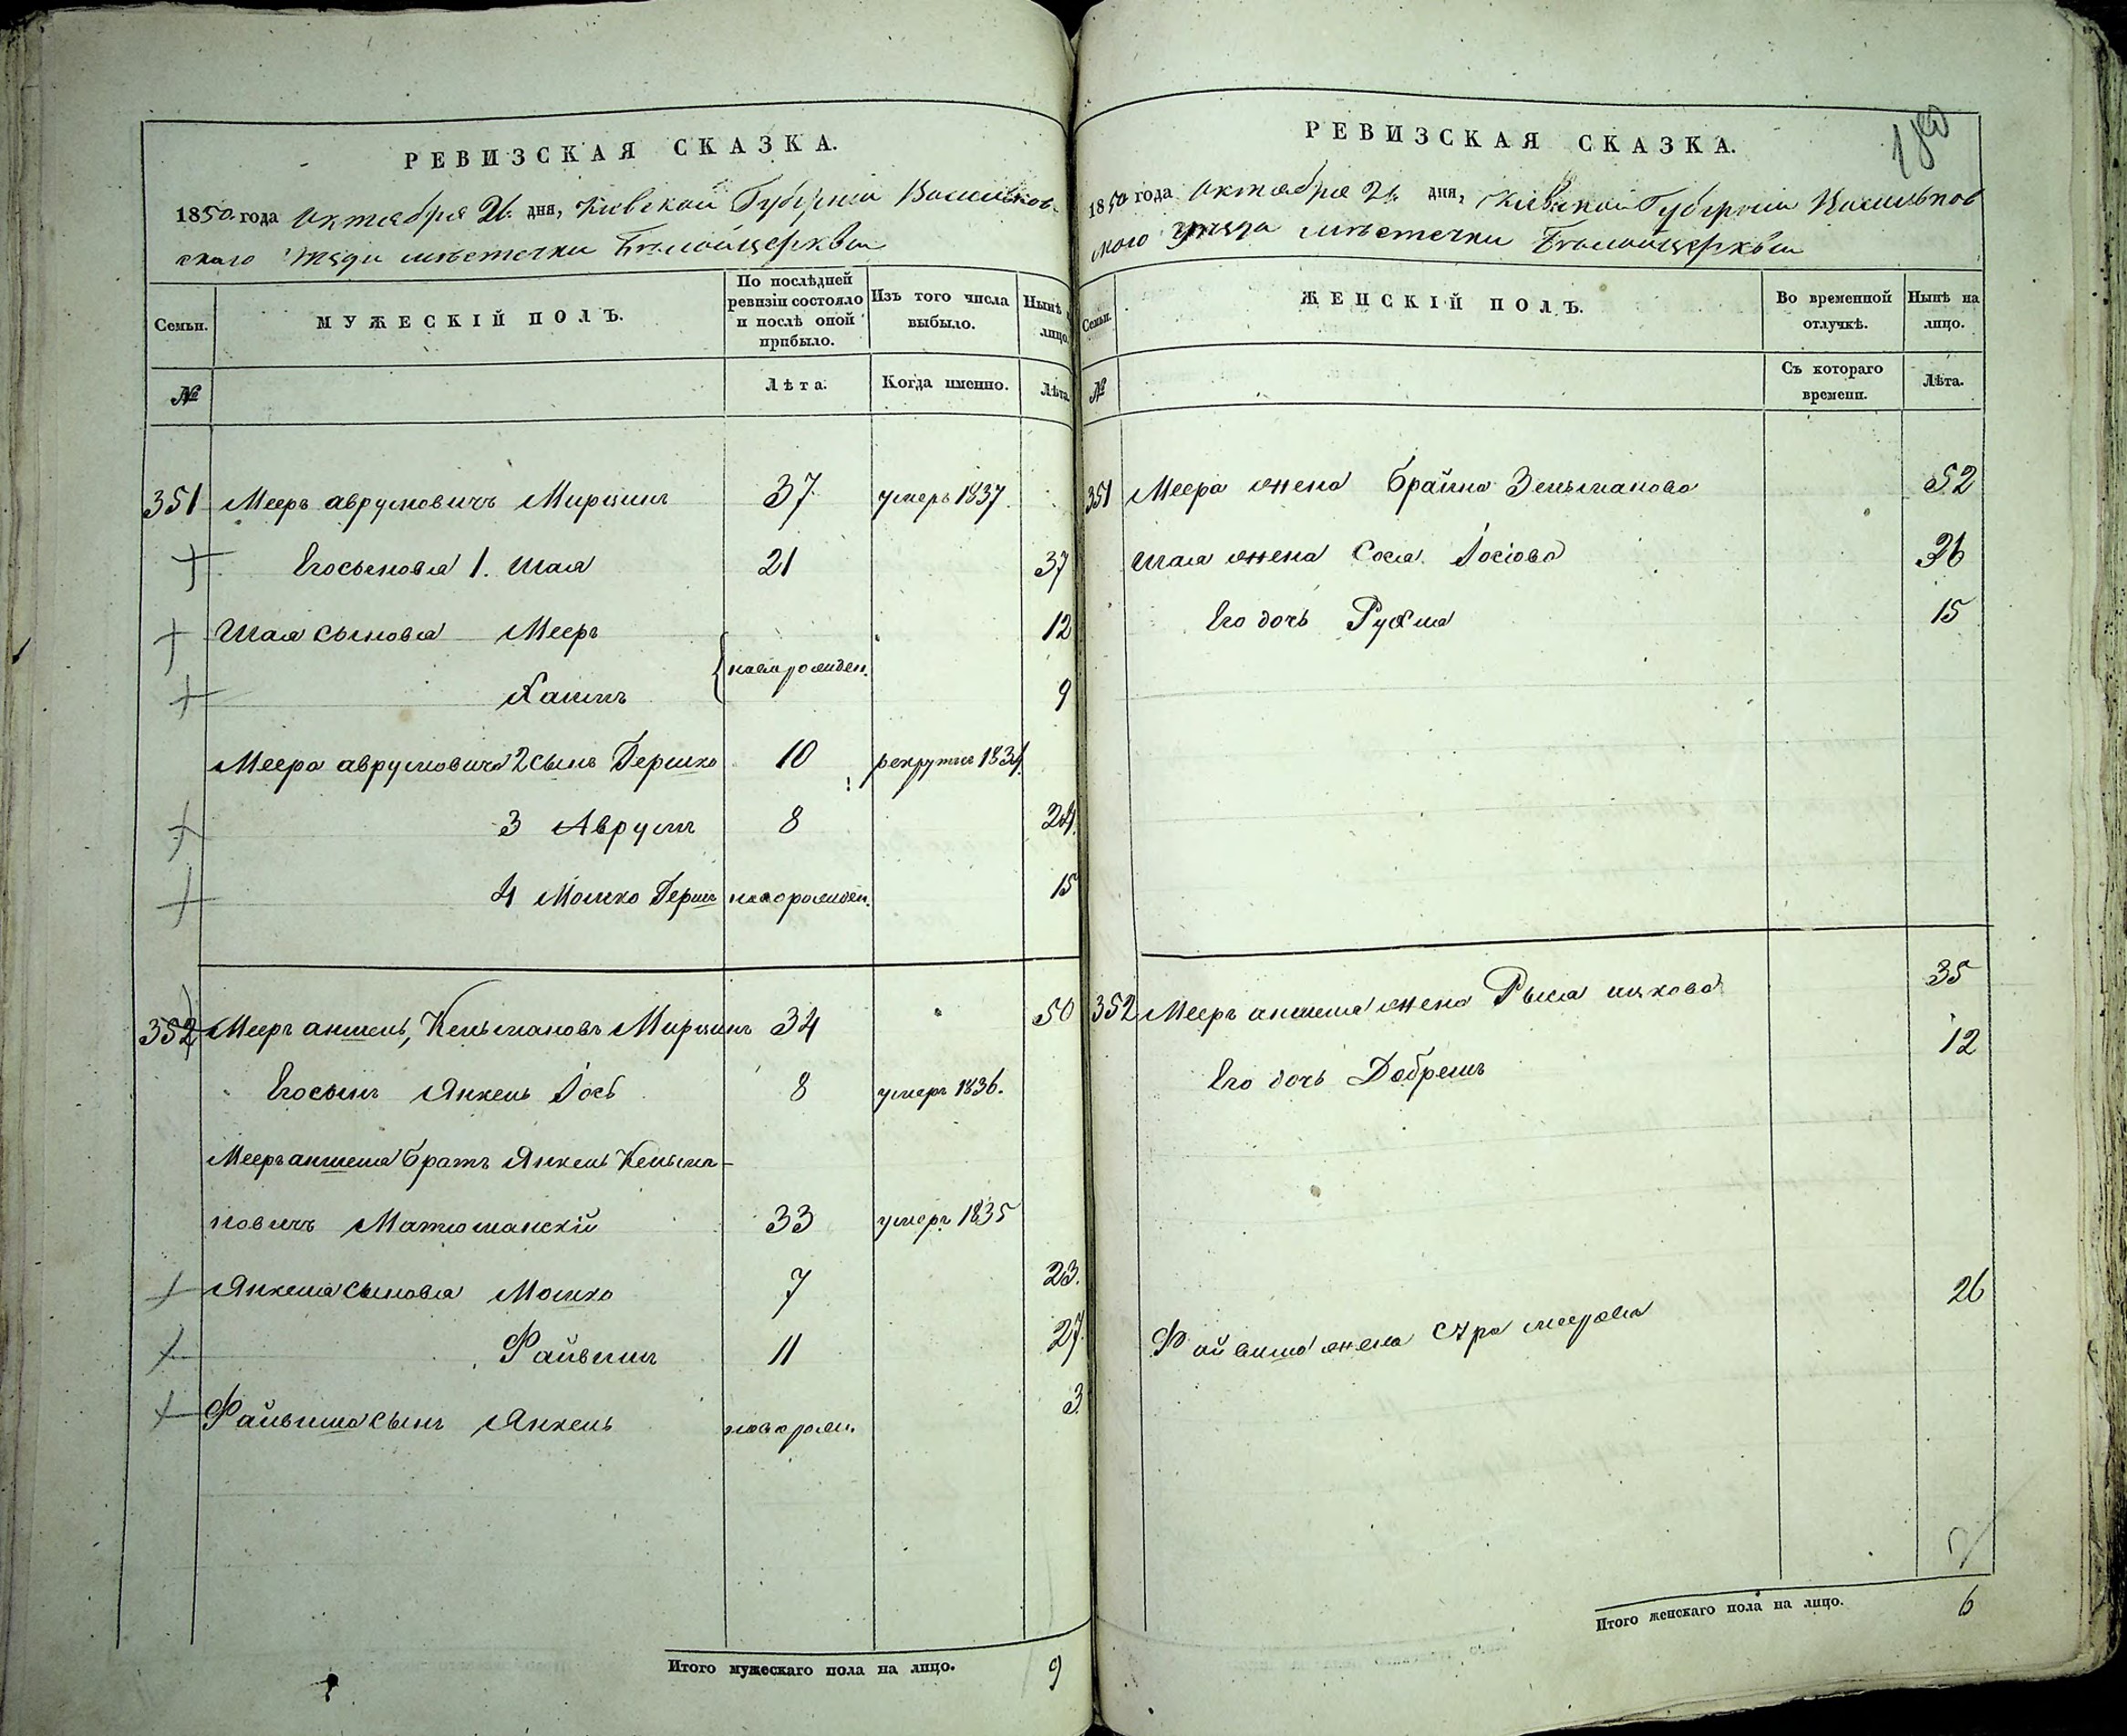 РЕВИЗСКАЯ СКАЗКА.
1850 года Октября 26 дня, Киевской Губерніи Васильков-
скаго уѣзда мѣстечки Бѣлойцеркви
Семьи.
МУЖЕСКІЙ ПОЛЪ.
По послѣдней ревизіи состояло и послѣ оной прибыло.
Изъ того числа выбыло.
Нынѣ на лицо.
№
Лѣта.
Когда именно.
Лѣта.
351 Мееръ Аврумовичъ Мирцинъ 37 умеръ 1837
Его сыновья 1. Шая 21 37
Шая сыновья Мееръ 12
новорожден.
Хаимъ 9
Меера Аврумовича 2 сынъ Гершко 10 рекрутъ 1834
3 Аврумъ 8 24
4 Мошко Герш новорожден. 15
352 Мееръ Аншель, Кельмановъ Мирцинъ 34 50
Его сынъ Янкель Іось 8 умеръ 1836.
Мееръ Аншеля братъ Янкель Кельма-
новичъ Матюшанскій 33 умеръ 1835
Янкеля сыновья Мошко 7 23.
Файвишъ 11 27.
Файвиша сынъ Янкель новорож. 3
Итого мужескаго пола на лицо. 9
180
РЕВИЗСКАЯ СКАЗКА.
1850 года Октября 26 дня, Киевской Губерніи Васильков
ского уѣзда мѣстечки Бѣлойцеркви
Семьи.
ЖЕНСКІЙ ПОЛЪ.
Во временной отлучкѣ.
Нынѣ на лицо.
№
Съ котораго времени.
Лѣта.
351 Меера жена Брайна Зельманова 52
Шая жена Сося Іосіова 36
Его дочь Рухля 15
352 Мееръ Аншеля жена Рыся Ицкова 35
Его дочь Добрешъ 12
Файвиша жена Меерова 26
Итого женскаго пола на лицо. 6